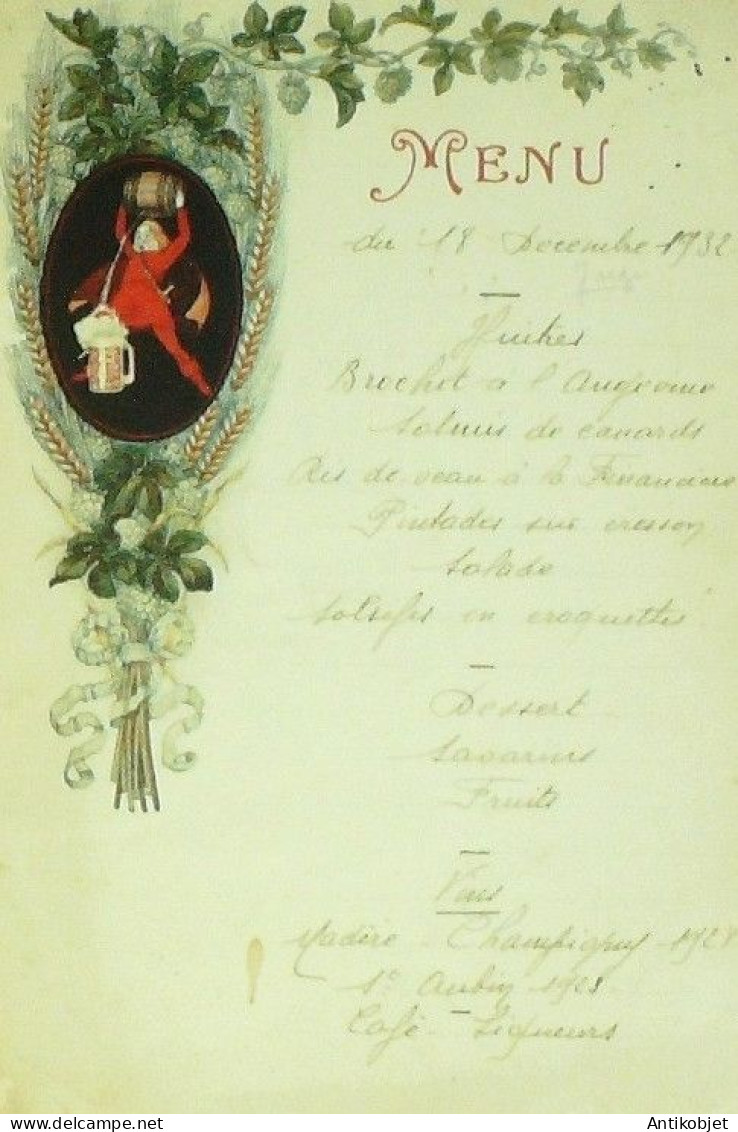 MENU
du 18 Decembre 1932
Huitres
Brochet a l'Angevine
Salmis de canards
Ris de veau à la Financière
Pintades sur cresson
Salade
Salsifis en croquettes
Dessert
Savarins
Fruits
Vins
Madère - Champigny - 1928
St Aubin 1923
Café - Liqueurs
Antikobjet